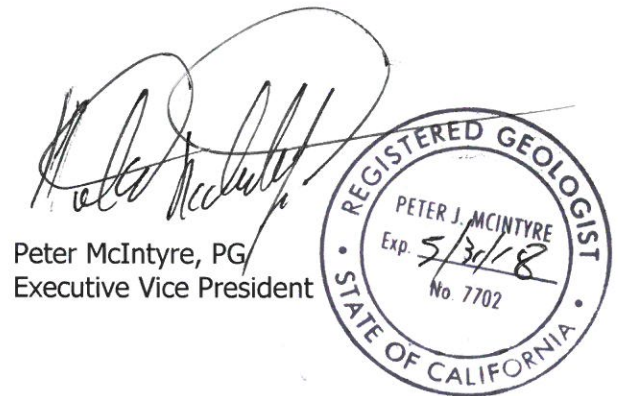 Peter McIntyre, PG
Executive Vice President
REGISTERED GEOLOGIST
PETER J. MCINTYRE
Exp. 5/31/18
No. 7702
STATE OF CALIFORNIA